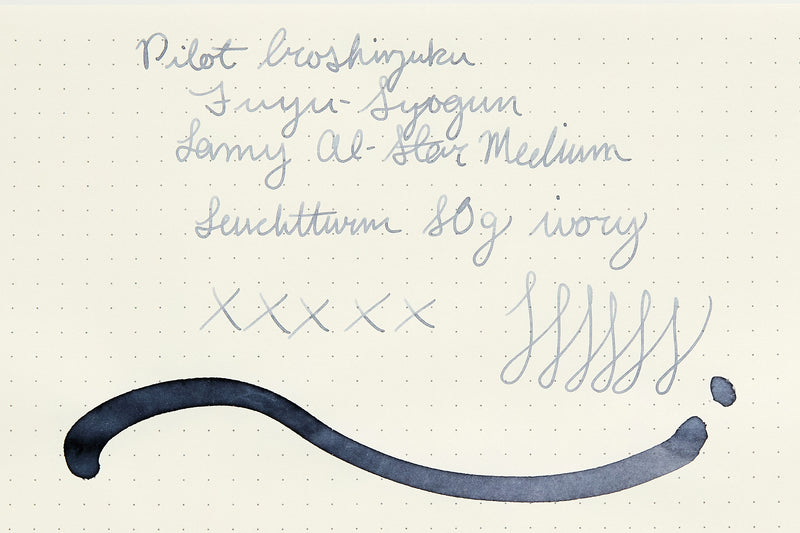 Pilot Iroshizuku
Fuyu-Syogun
Lamy Al-Star Medium
Leuchtturm 80g ivory
X X X X X